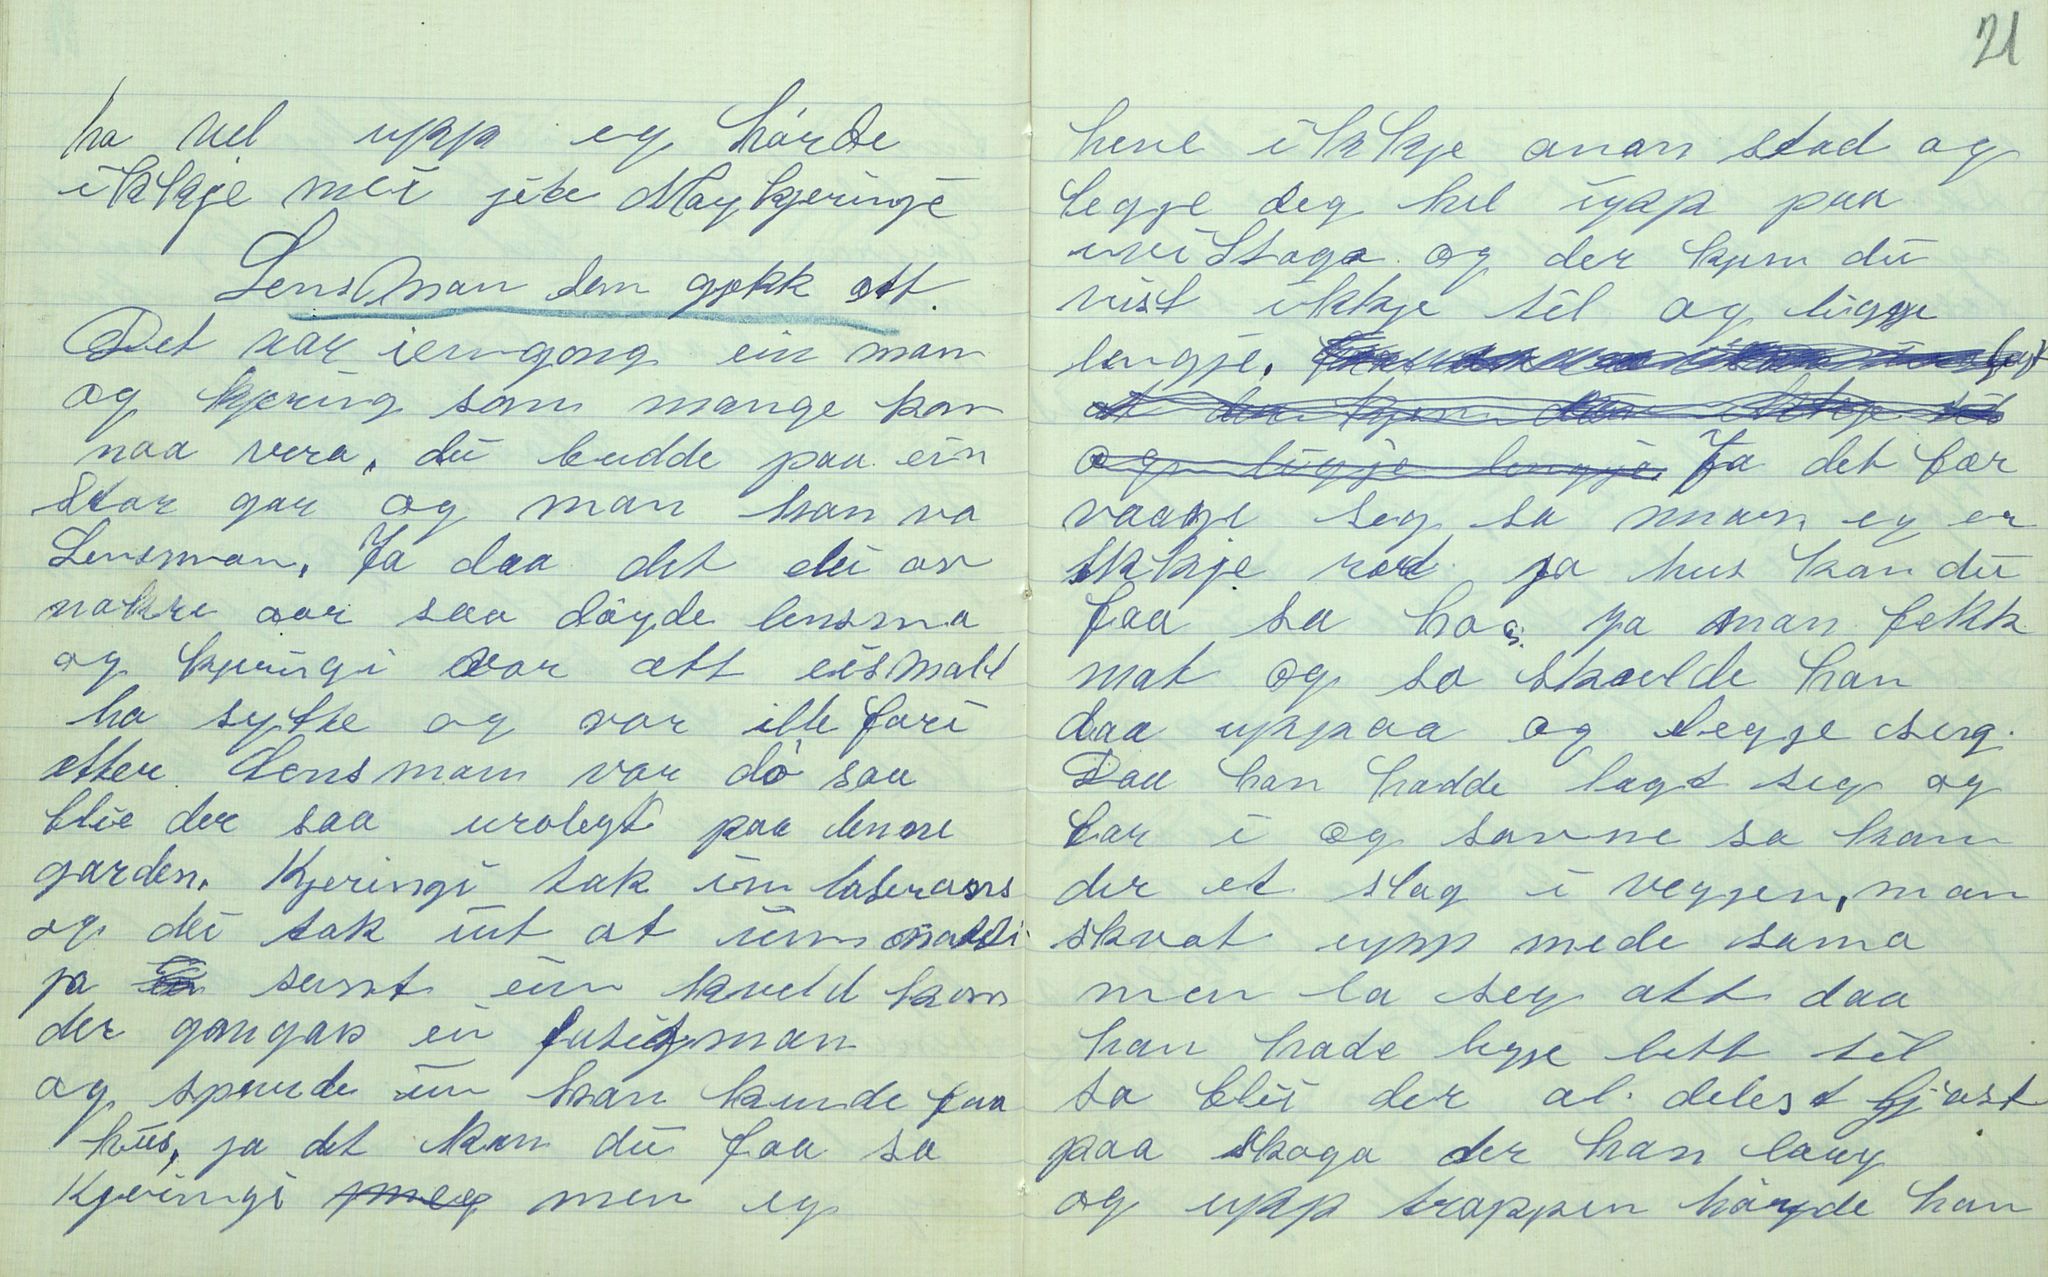 ha vel upp eg hórde
ikkje mei jete Maykjeringe
Lensman dem gjekk att.
Det var iengong ein man
og kjering som mange kan
naa vera, dei budde paa ein
stor gar og man han va
Lensman. Ja daa det lei av
nokre aar saa döyde lensma
og kjeringi var att eismalt
ha sytte og var ille fari
etter Lensmam var dö saa
blie der saa urolegt paa
garden. Kjeringi tok in
og dei tok üt at
ja seint ein kveld kom
der gangan ei fatigman
og spurde üm han kunde faa
hüs, ja det kan dü faa sa
Kjeringi men eg
21
heve ikkje anan stad og
legge deg hel üpp paa
nvistoga og der kjem dü
vist ikkje til og ligge
lengje. Ja det fær
vaage seg sa man eg er
ikkje red ja hus kan dü
faa sa hoa. Ja man fekk
mat og so skulde han
daa uppaa og legge seg.
Daa han hadde lagt seg og
lar i og sovne so kom
der et slag i veggen, man
skvat upp mede sama
men la seg att daa
han hade legje litt til
so blei der al. delest bjart
paa skoga der han laag
og upp trappen höyrde han